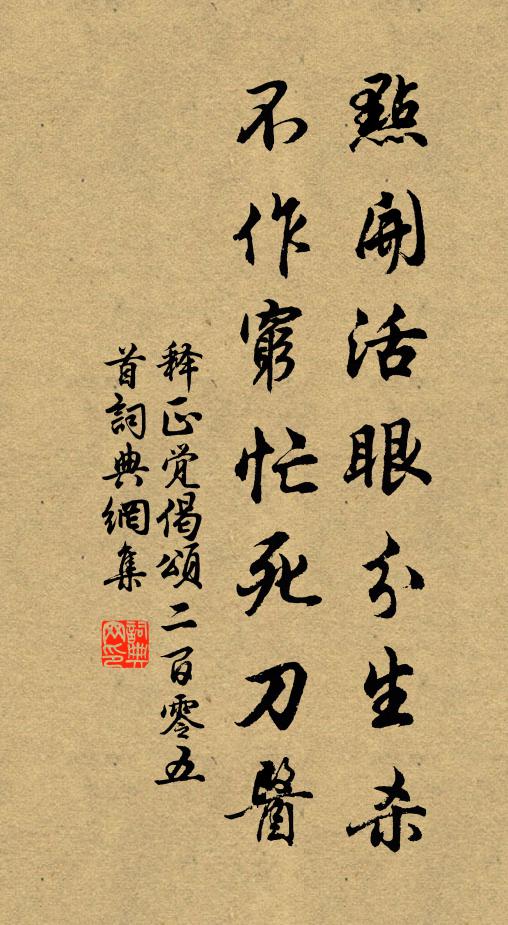 點開活眼分生杀
不作窮忙死刀醫
释正觉偈頌二百零五
首詞典網集
詞典网印